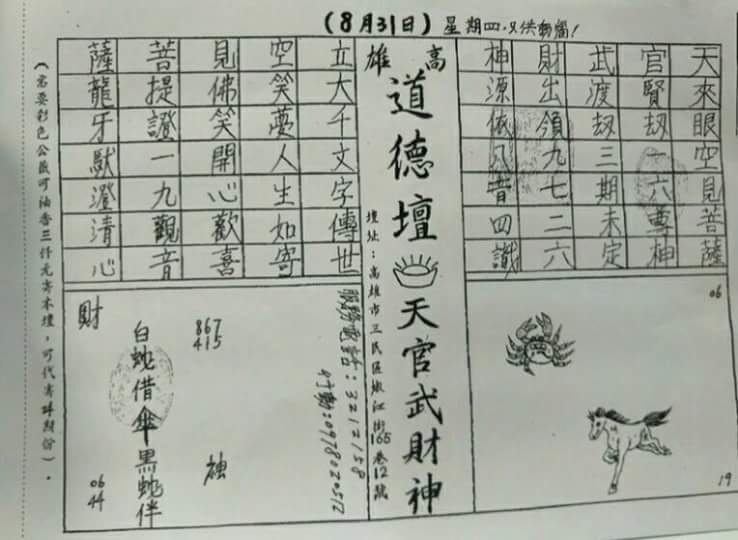 (8月31日) 星期四.只供動腦!
天來眼空見菩薩
官賢劫一六尊神
武渡劫三期未定
財出領九七二六
神源依八昔四識
06
19
高雄
道德壇
天官武財神
壇址:高雄市三民區嫩江街165巷12號
服務電話:3212158
行動:
立大千文字傳世
空笑夢人生如寄
見佛笑開心歡喜
菩提證一九觀音
薩龍牙獻澄清心
867
415
白蛇借傘黑蛇伴
財
06
44
(需要彩色公 可油香三仟元寄本壇,可代寄 期份).